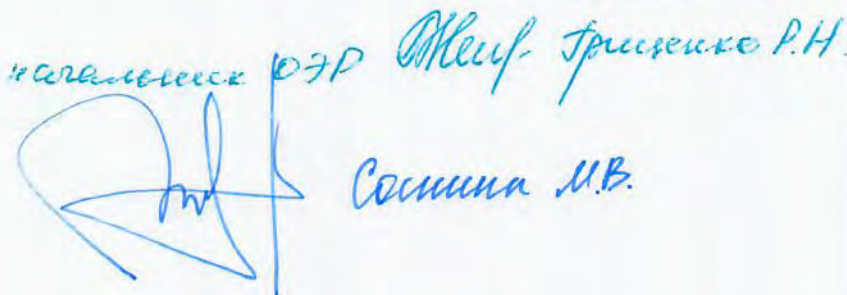 начальник ОЭР Грищенко Р.Н.
Соснина М.В.